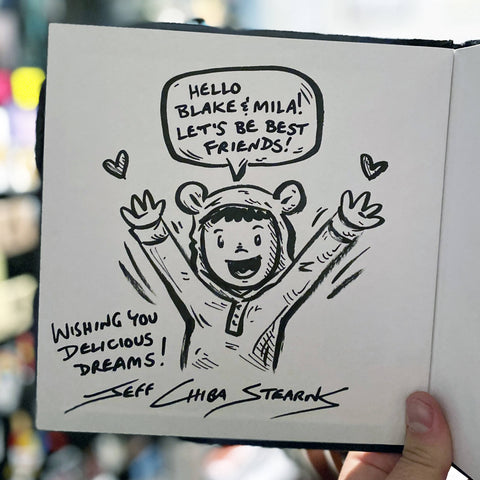 HELLO
BLAKE & MILA!
LET'S BE BEST
FRIENDS!
WISHING YOU
DELICIOUS
DREAMS!
JEFF CHIBA STEARNS